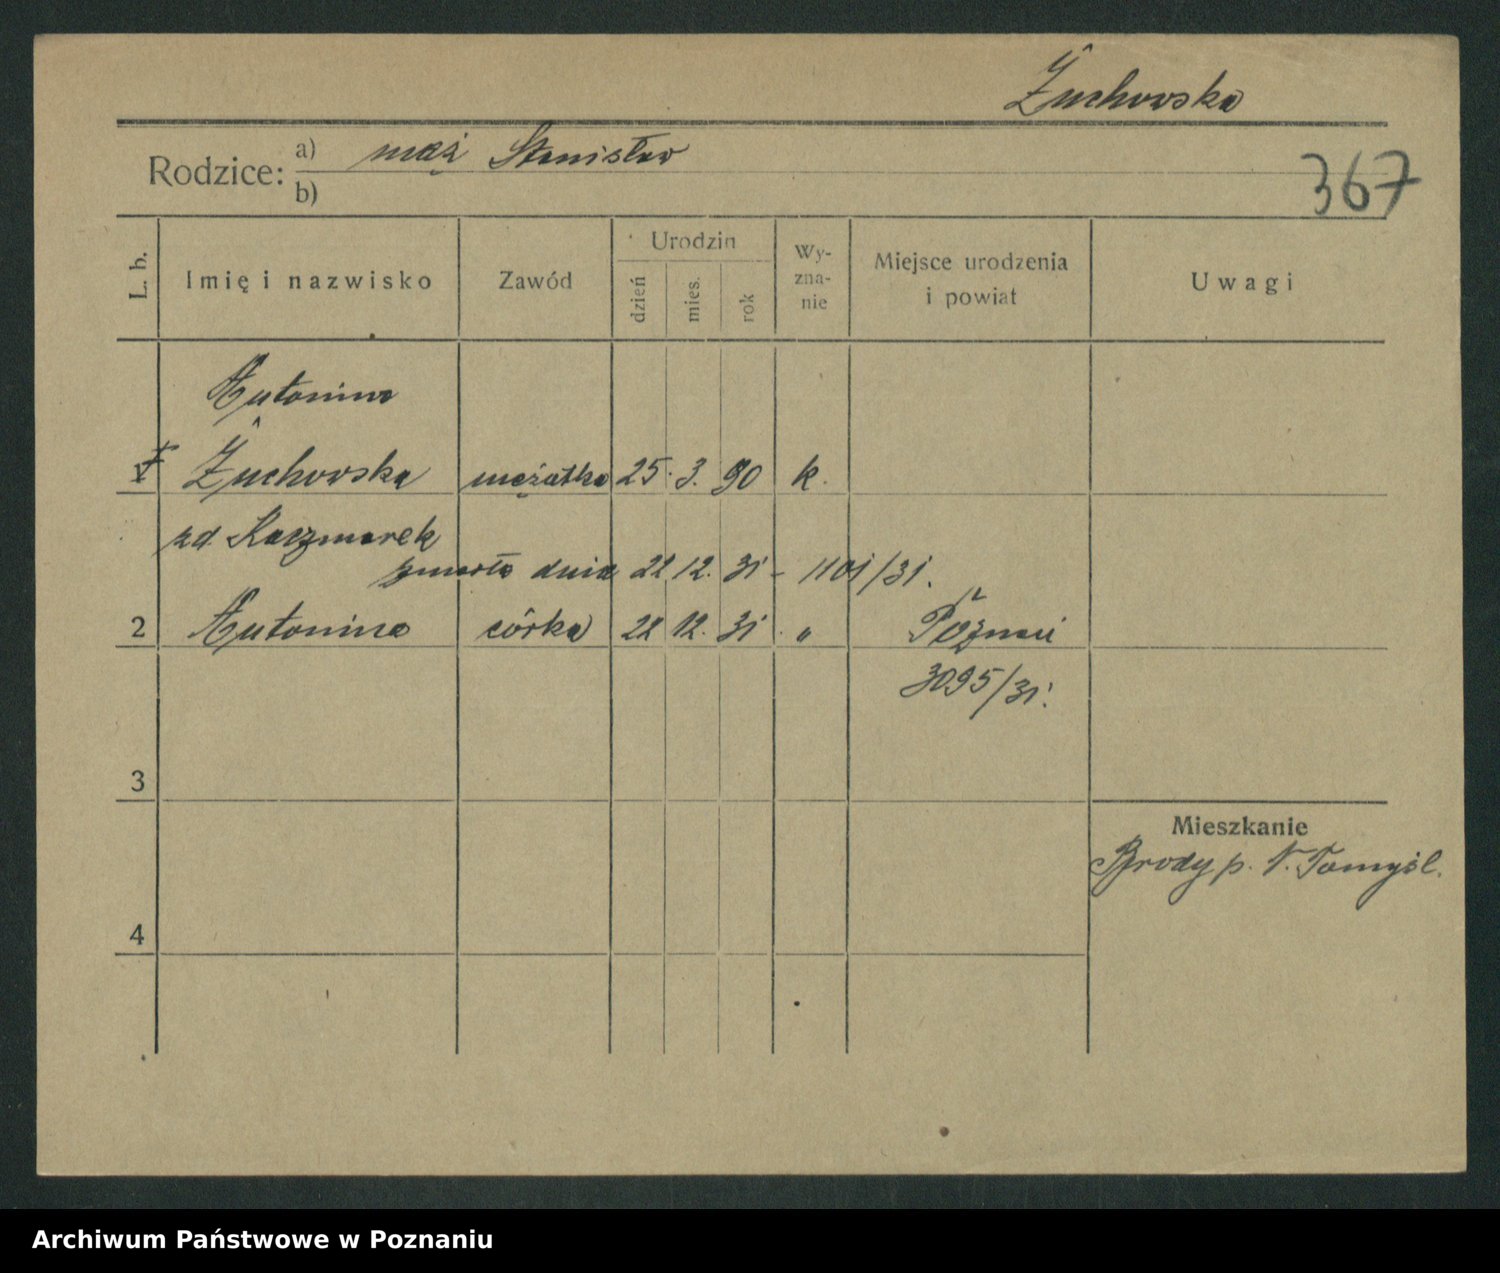 Żuchowska
Rodzice: a) mąż Stanisław
b)
367
L. b.
Imię i nazwisko
Zawód
Urodzin
dzień
mies.
rok
Wy-
zna-
nie
Miejsce urodzenia
i powiat
Uwagi
Antonina
1 Żuchowska mężatka 25. 3. 90 k.
zd. Kaczmarek
zmarła dnia 22 12. 31 - 1101/31.
2 Antonina córka 22 12. 31 . „ Poznań
3095/31.
3
Mieszkanie
Brody p. N. Tomyśl.
4
Archiwum Państwowe w Poznaniu